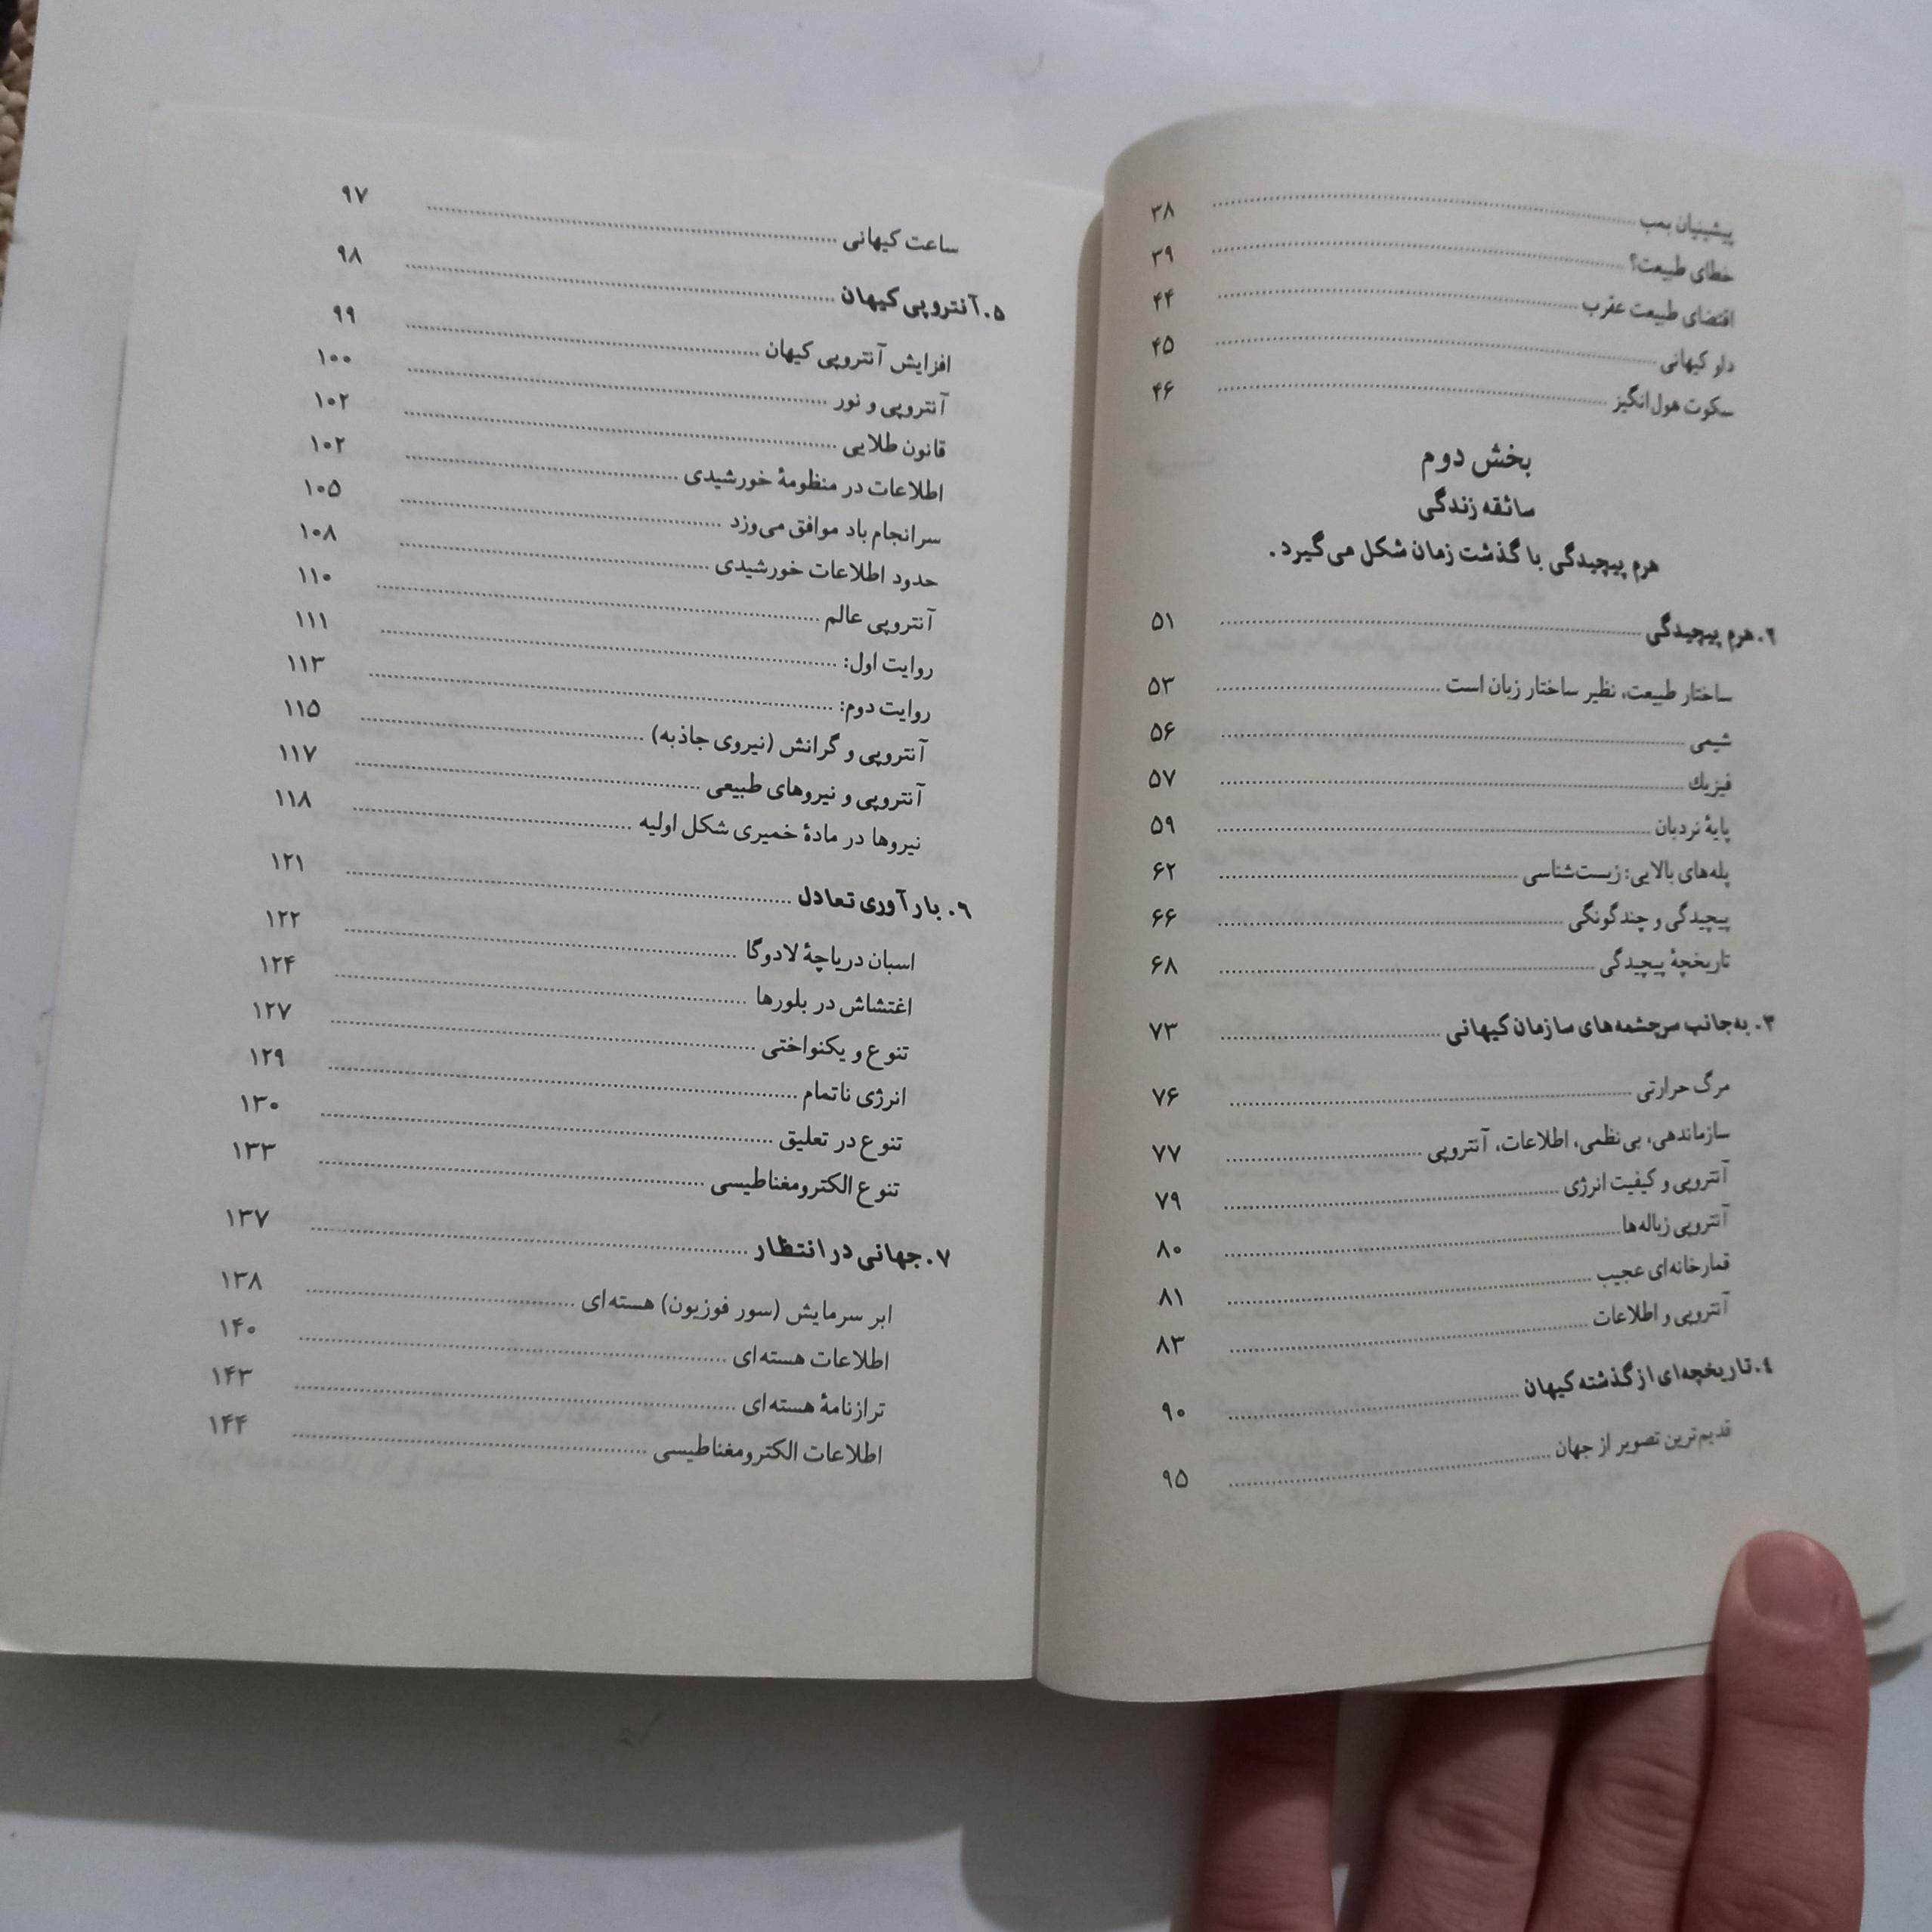 پیشینیان بمب ۳۸
خطای طبیعت؟ ۳۹
اقتضای طبیعت عقرب ۴۴
داو کیهانی ۴۵
سکوت هول‌انگیز ۴۶
بخش دوم
سائقه زندگی
هرم پیچیدگی با گذشت زمان شکل می‌گیرد.
۲. هرم پیچیدگی ۵۱
ساختار طبیعت، نظیر ساختار زبان است ۵۳
شیمی ۵۶
فیزیك ۵۷
پایهٔ نردبان ۵۹
پله‌های بالایی: زیست‌شناسی ۶۲
پیچیدگی و چندگونگی ۶۶
تاریخچهٔ پیچیدگی ۶۸
۳. به‌جانب سرچشمه‌های سازمان کیهانی ۷۳
مرگ حرارتی ۷۶
سازماندهی، بی‌نظمی، اطلاعات، آنتروپی ۷۷
آنتروپی و کیفیت انرژی ۷۹
آنتروپی زباله‌ها ۸۰
قمارخانه‌ای عجیب ۸۱
آنتروپی و اطلاعات ۸۳
۴. تاریخچه‌ای از گذشته کیهان ۹۰
قدیم‌ترین تصویر از جهان ۹۵
ساعت کیهانی ۹۷
۵. آنتروپی کیهان ۹۸
افزایش آنتروپی کیهان ۹۹
آنتروپی و نور ۱۰۰
قانون طلایی ۱۰۲
اطلاعات در منظومهٔ خورشیدی ۱۰۲
سرانجام باد موافق می‌وزد ۱۰۵
حدود اطلاعات خورشیدی ۱۰۸
آنتروپی عالم ۱۱۰
روایت اول: ۱۱۱
روایت دوم: ۱۱۳
آنتروپی و گرانش (نیروی جاذبه) ۱۱۵
آنتروپی و نیروهای طبیعی ۱۱۷
نیروها در مادهٔ خمیری شکل اولیه ۱۱۸
۶. بارآوری تعادل ۱۲۱
اسبان دریاچهٔ لادوگا ۱۲۲
اغتشاش در بلورها ۱۲۴
تنوع و یکنواختی ۱۲۷
انرژی ناتمام ۱۲۹
تنوع در تعلیق ۱۳۰
تنوع الکترومغناطیسی ۱۳۳
۷. جهانی در انتظار ۱۳۷
ابر سرمایش (سور فوزیون) هسته‌ای ۱۳۸
اطلاعات هسته‌ای ۱۴۰
ترازنامهٔ هسته‌ای ۱۴۳
اطلاعات الکترومغناطیسی ۱۴۴